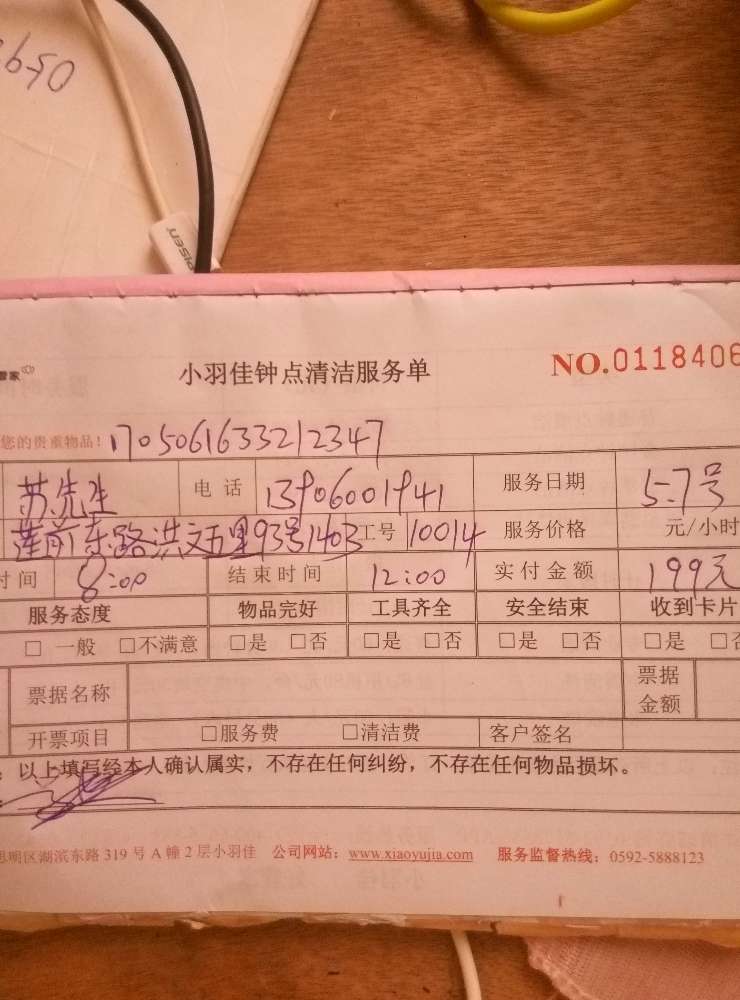 PISEN
管家
小羽佳钟点清洁服务单
NO.0118406
您的贵重物品! 1705061633212347
苏先生 电话 13906001941 服务日期 5.7号
莲前东路洪文五里93号1403 工号 10014 服务价格 元/小时
时间 8:00 结束时间 12:00 实付金额 199元
服务态度 物品完好 工具齐全 安全结束 收到卡片
□ 一般 □不满意 □是 □否 □是 □否 □是 □否 □是 □否
票据名称 票据金额
开票项目 □服务费 □清洁费 客户签名
: 以上填写经本人确认属实，不存在任何纠纷，不存在任何物品损坏。
思明区湖滨东路 319 号 A 幢 2 层小羽佳 公司网站: www.xiaoyujia.com 服务监督热线: 0592-5888123